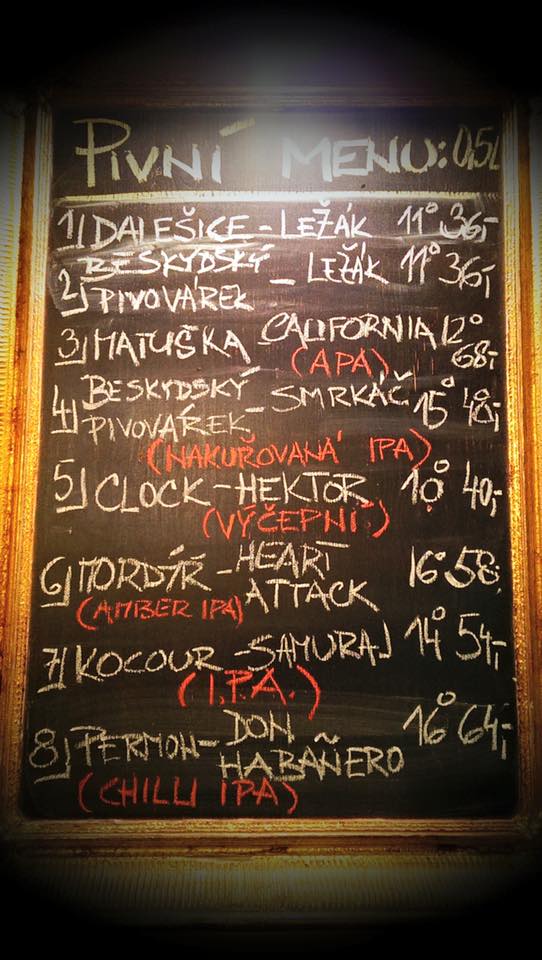 PIVNÍ MENU: 0,5L
1) DALEŠICE - LEŽÁK 11° 36,-
2) BESKYDSKÝ PIVOVÁREK - LEŽÁK 11° 36,-
3) MATUŠKA CALIFORNIA 12° 68,-
(APA)
4) BESKYDSKÝ PIVOVÁREK - SMRKÁČ 15° 48,-
(NAKUŘOVANÁ IPA)
5) CLOCK - HEKTOR 10° 40,-
(VÝČEPNÍ)
6) MORDÝŘ - HEART ATTACK 16° 58,-
(AMBER IPA)
7) KOCOUR - SAMURAJ 14° 54,-
(I.P.A.)
8) PERMON - DON HABAÑERO 16° 64,-
(CHILLI IPA)